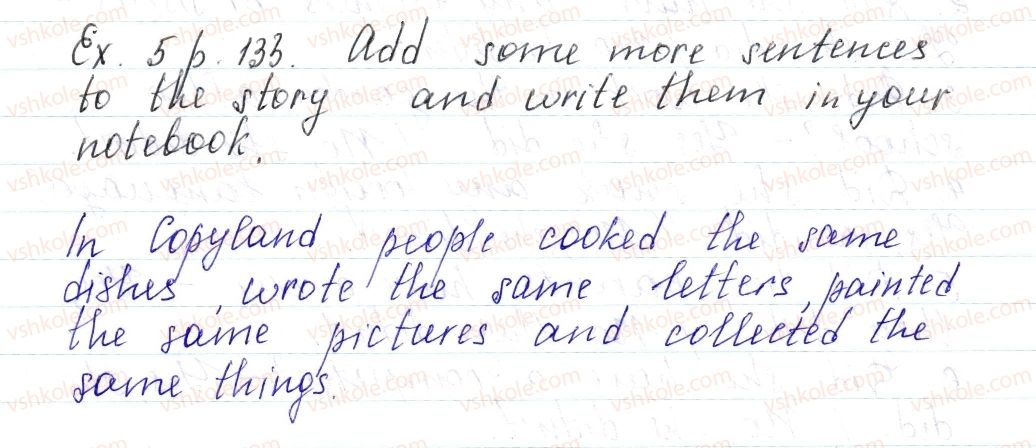 Ex. 5 p. 133. Add some more sentences
to the story and write them in your
notebook.
In Copyland people cooked the same
dishes, wrote the same letters, painted
the same pictures and collected the
same things.